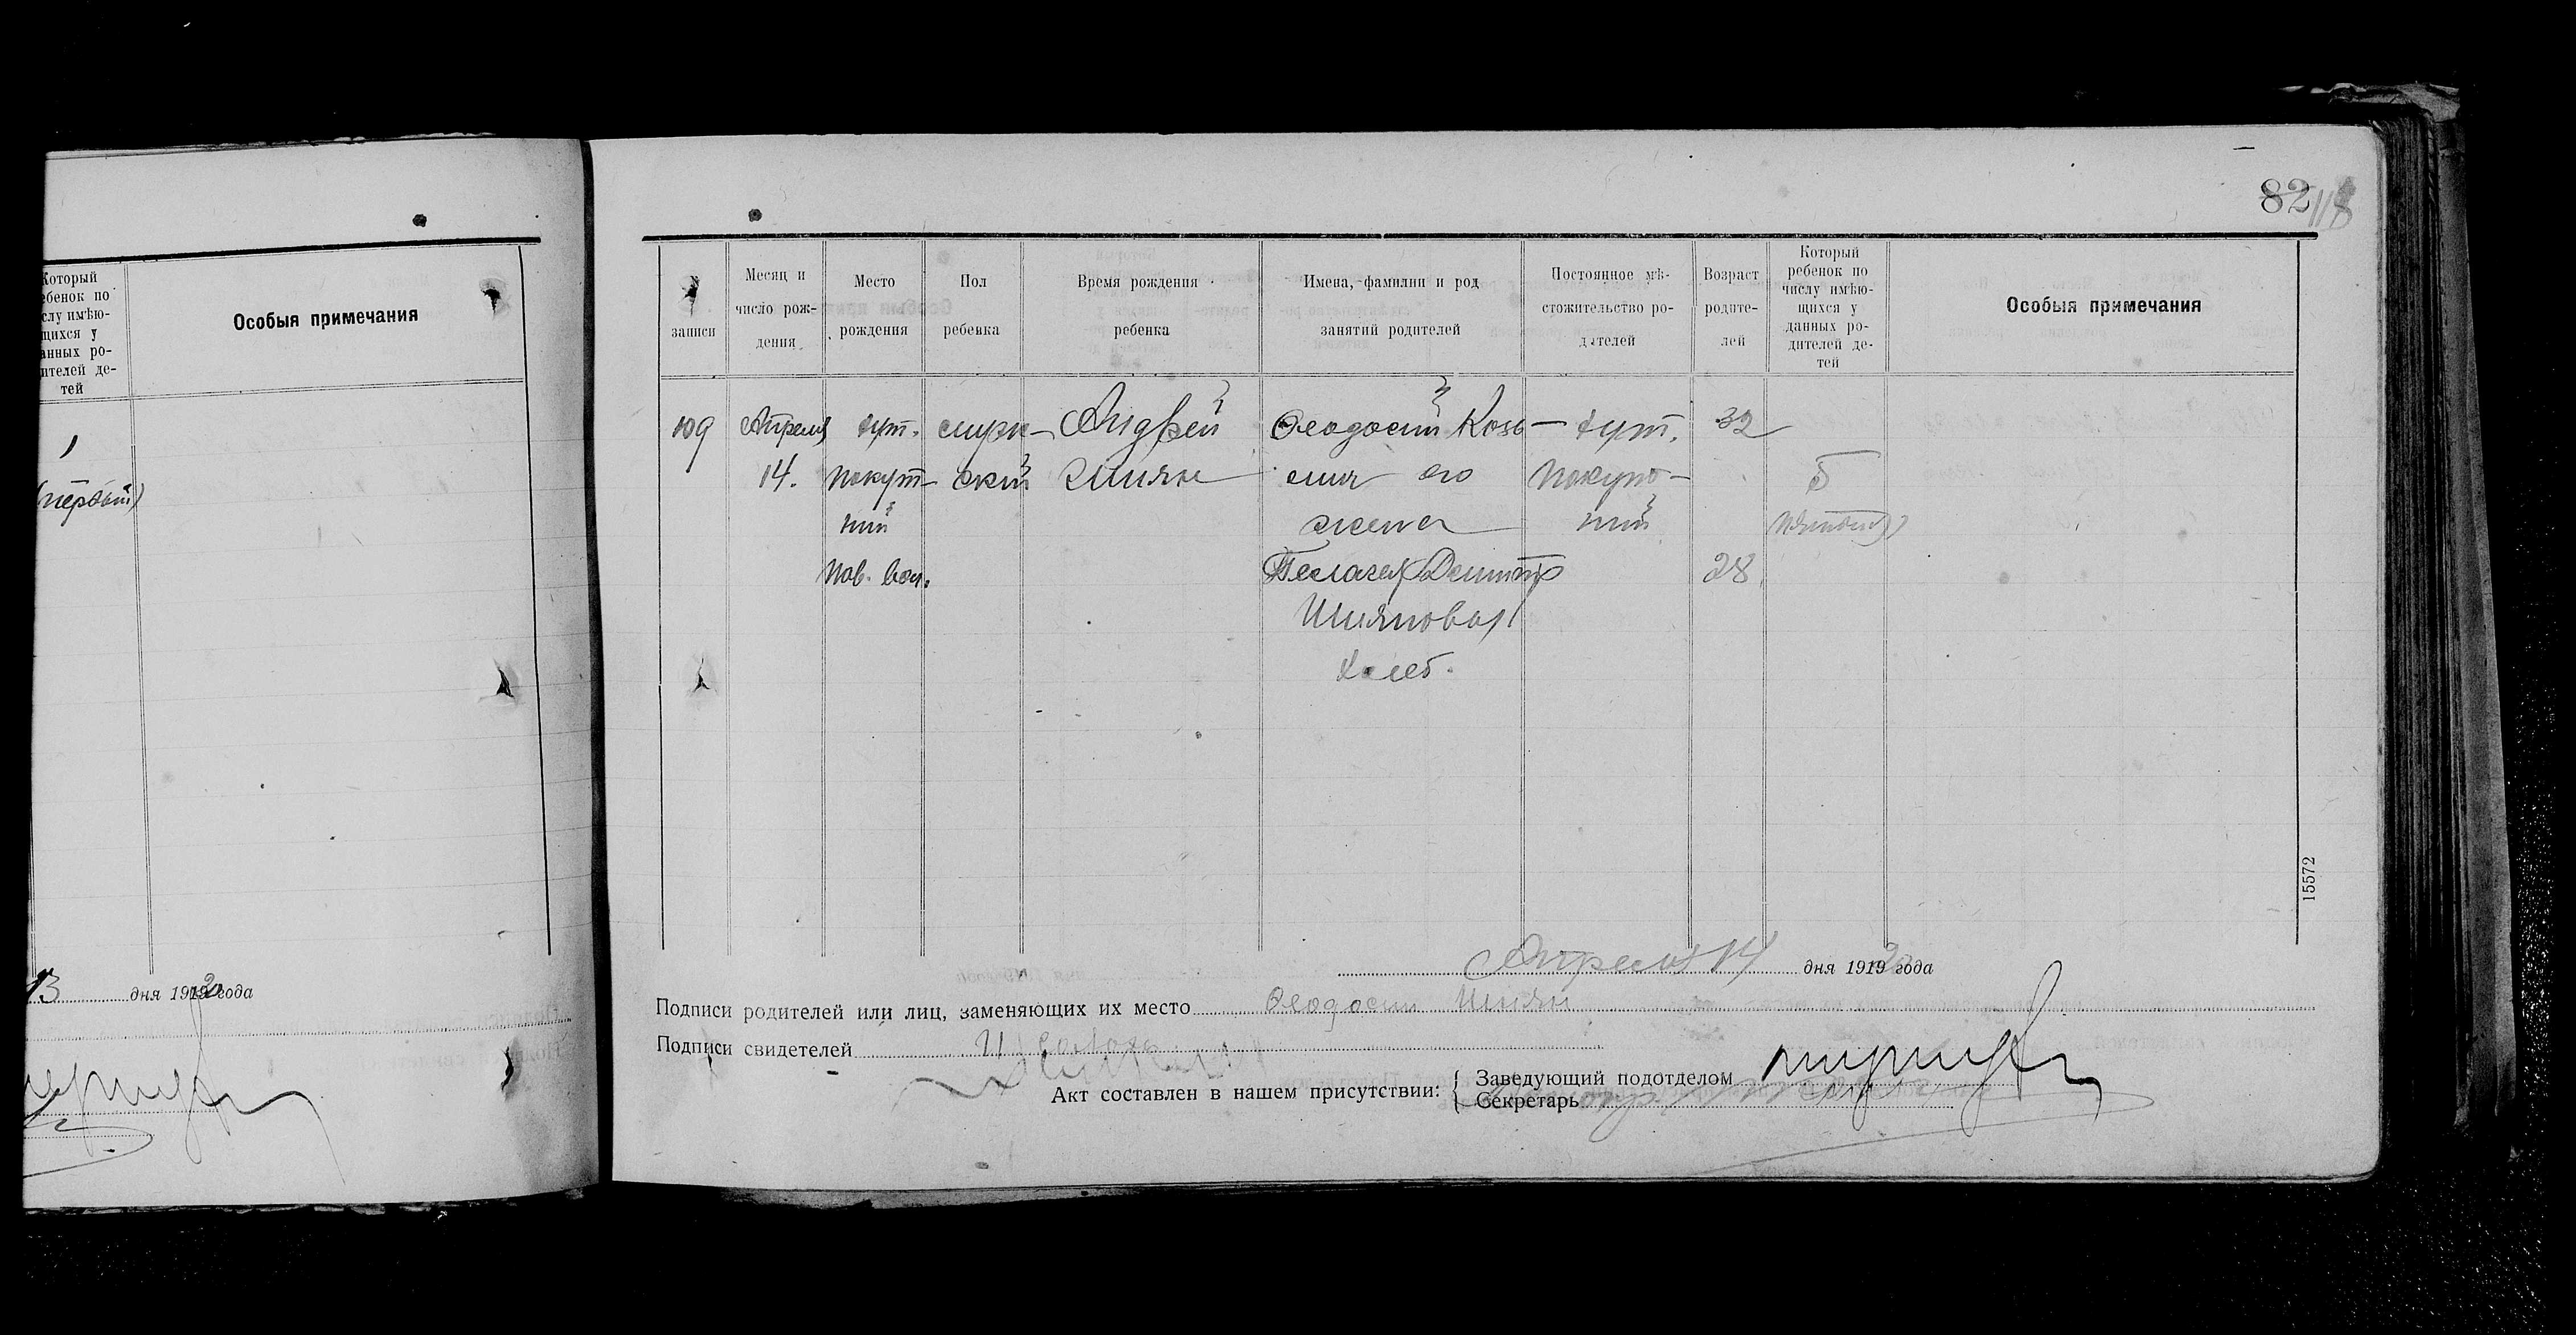 Который
ребенок по
числу имѣю-
щихся у
данных ро-
дителей де-
тей
Особыя примечания
1
(первый)
13 дня 1919 20 года
82
118
№
записи
Месяц и
число рож-
дения
Место
рождения
Пол
ребенка
Время рождения
ребенка
Имена, фамилии и род
занятий родителей
Постоянное мѣ-
стожительство ро-
дителей
Возраст
родите-
лей
Который
ребенок по
числу имѣю-
щихся у
данных ро-
дителей де-
тей
Особыя примечания
109
Апреля
14.
хут.
покут-
ний
Нов. вол.
мужс-
кий
Андрей
Шиян
Феодосий Козь-
мич его
жена
Пелагея Дмитр
Шиянова
хлеб.
хут.
покут-
ний
32
28
5
(пятый)
15572
Апреля 14 дня 1919 20 года
Подписи родителей или лиц, заменяющих их место Феодосий Шиян
Подписи свидетелей
Акт составлен в нашем присутствии:
Заведующий подотделом
Секретарь